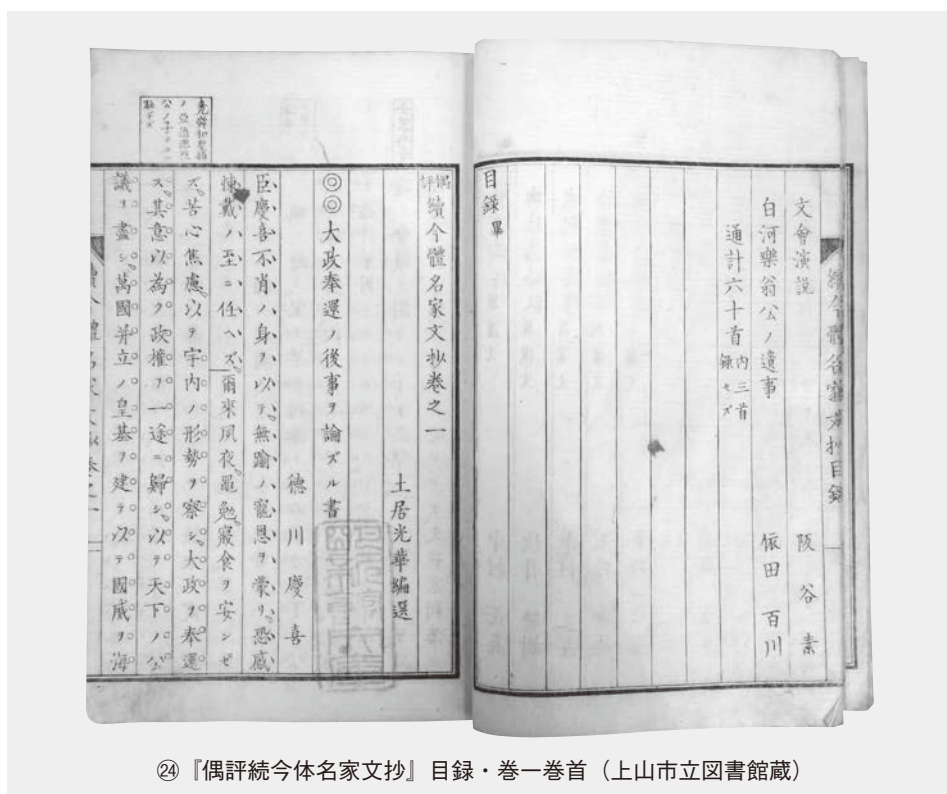 續今體名家文抄目録
文會演説 阪谷素
白河樂翁公ノ遺事 依田百川
通計六十首 内三首録セズ
目録畢
偶評續今體名家文抄卷之一
土居光華編選
◎◎大政奉還ノ後事ヲ論ズル書
德川慶喜
臣慶喜不肖ノ身ヲ以テ無踰ノ寵恩ヲ蒙リ恐感
悚戴ノ至ニ任ヘズ爾來夙夜黽勉寢食ヲ安ンゼ
ズ苦心焦慮以テ宇内ノ形勢ヲ察シ大政ヲ奉還
ス其意以為ク政權ヲ一途ニ歸シ以テ天下ノ公
議ヲ盡シ萬國并立ノ皇基ヲ建テ以テ國威ヲ海
㉔『偶評続今体名家文抄』目録・巻一巻首（上山市立図書館蔵）